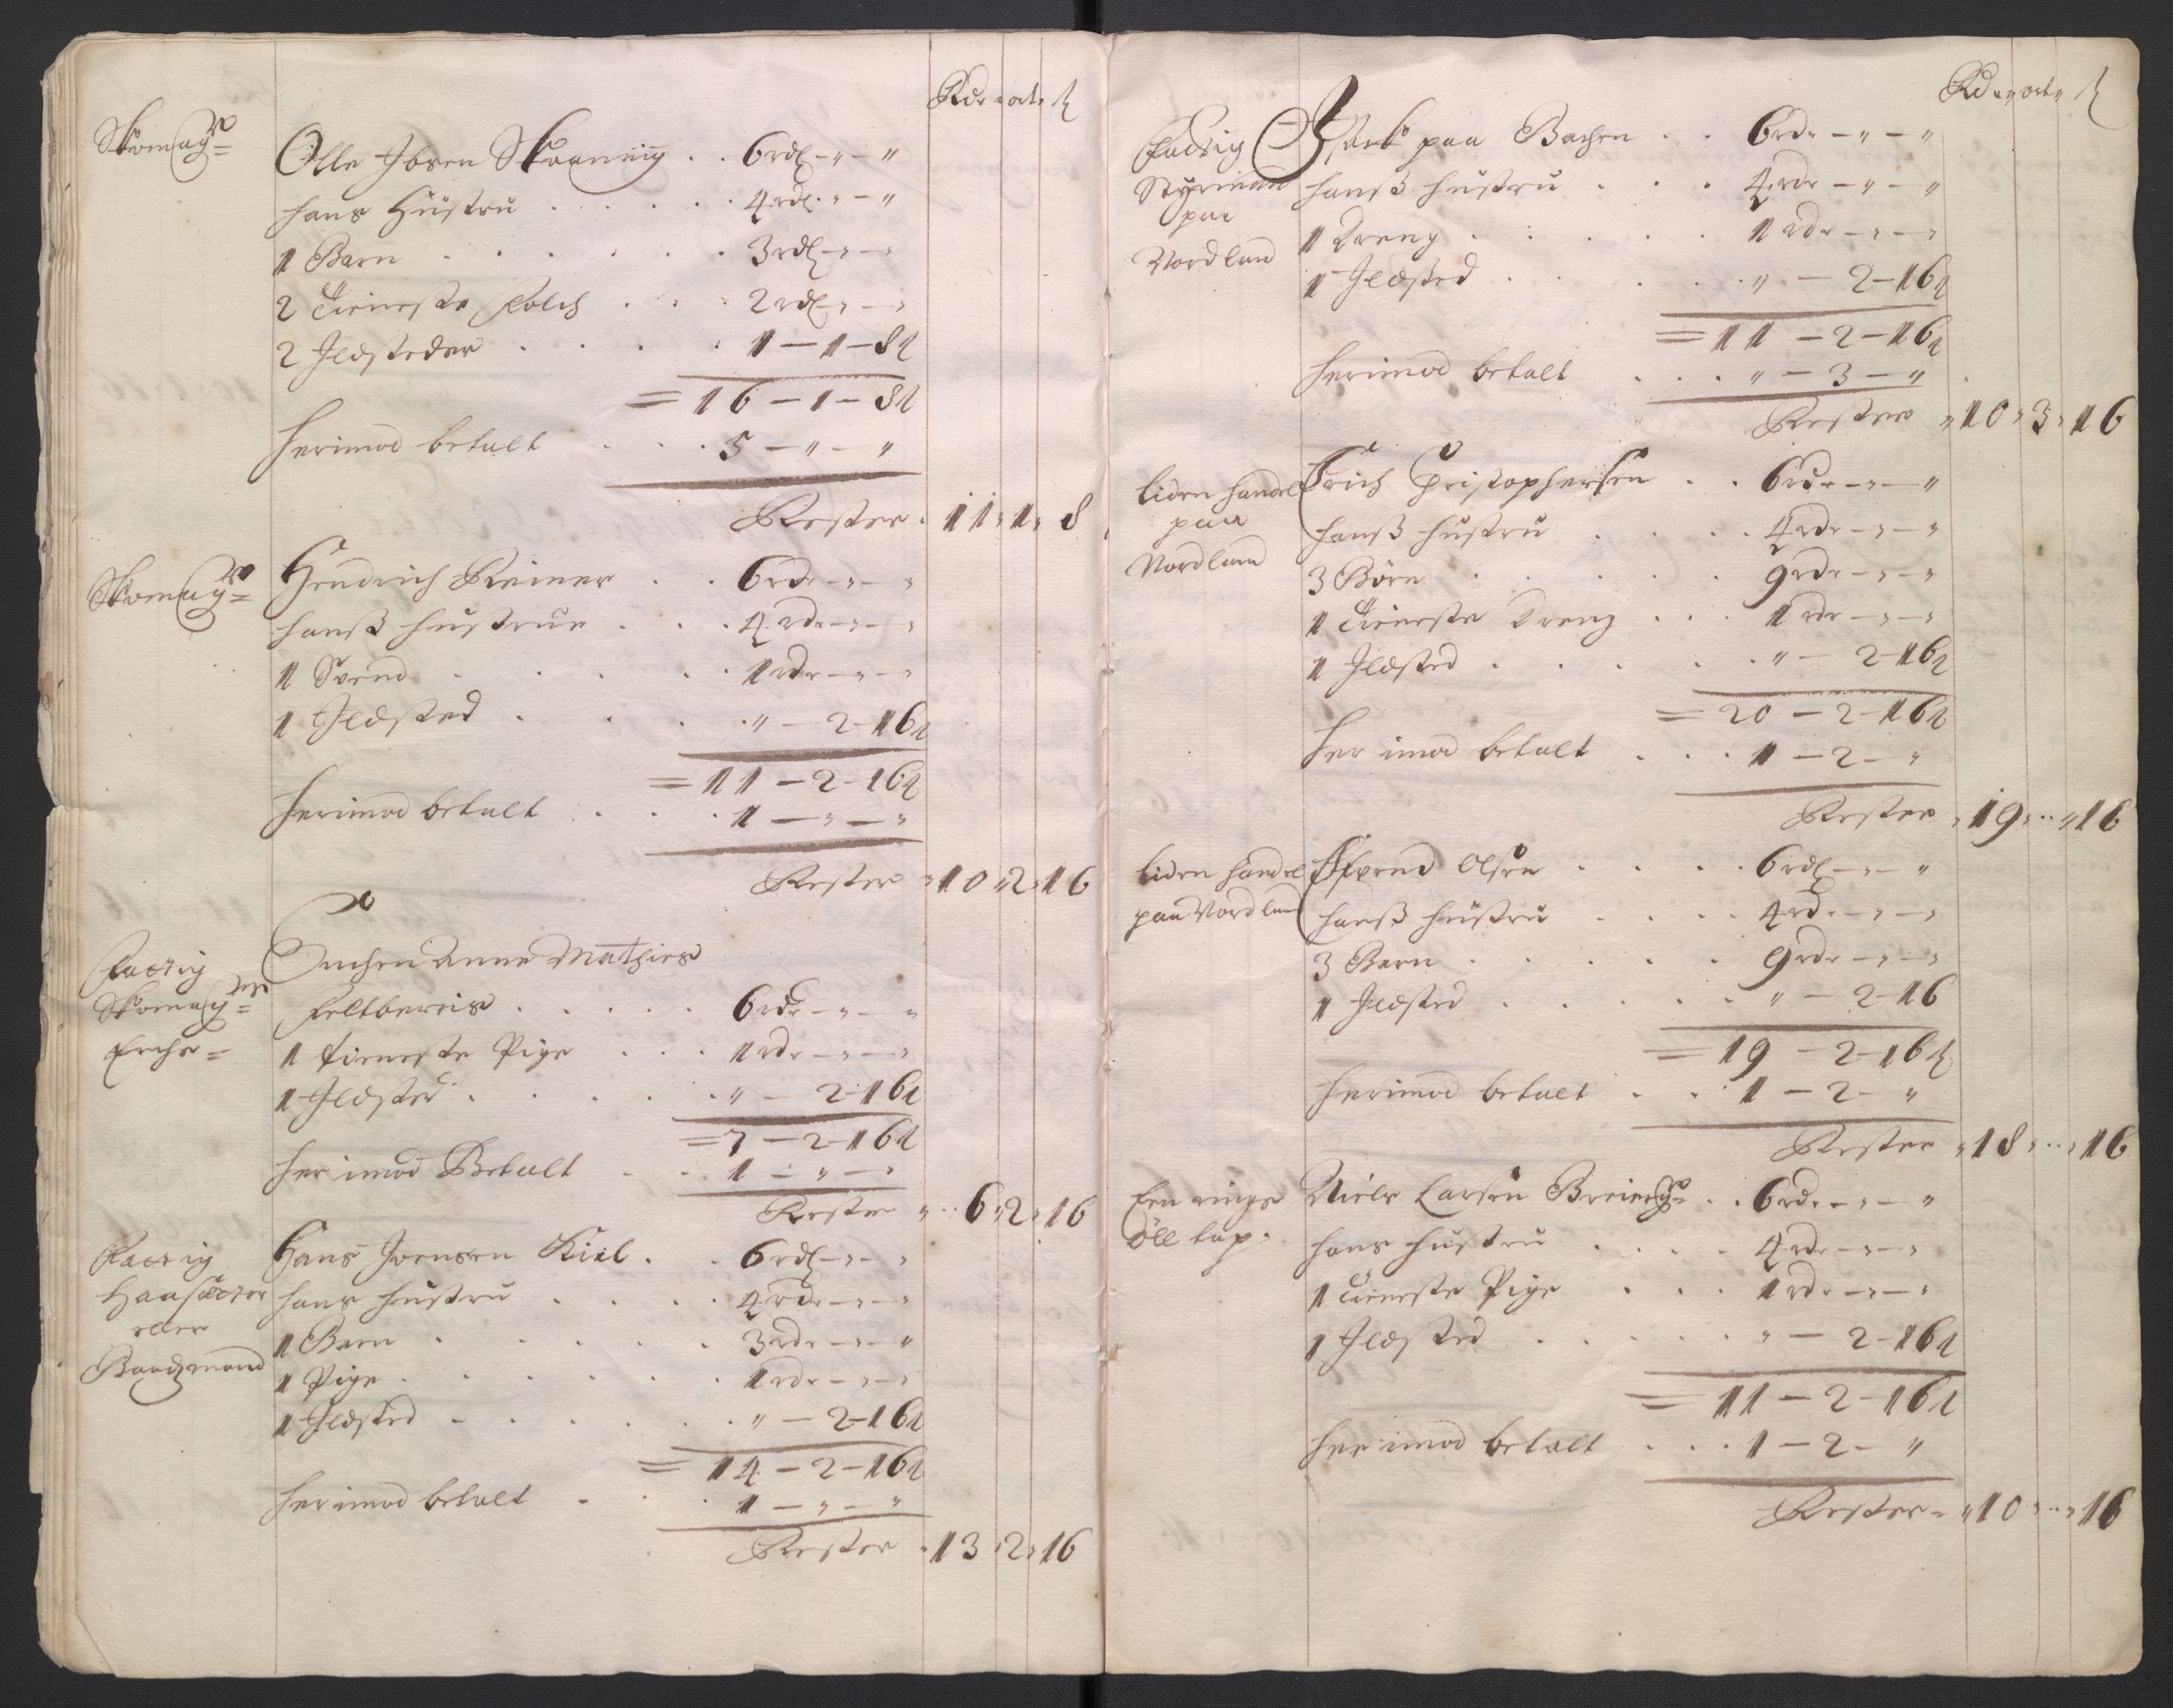 Rdr ort ß
Skomag^r= Olle Ibsen Skaaning . . 6 rdl - " - "
hans Hustru . . . . . 4 rdl - " - "
1 Barn . . . . . . 3 rdl - " - "
2 Tieneste folch . . . 2 rdl - " - "
2 Ildsteder . . . . 1 - 1 - 8 ß
= 16 - 1 - 8 ß
herimod betalt . . . 5 - " - "
Rester . 11 " 1 " 8
Skomag^r= Hendrich Reimer . . 6 rdr - " - "
hanß hustrue . . . 4 rdr - " - "
1 Svend . . . . . 1 rdr - " - "
1 Ildsted . . . . " - 2 - 16 ß
= 11 - 2 - 16 ß
herimod betalt . . . 1 - " - "
Rester " 10 " 2 " 16
Enchen Anne Mathies
Fattig
Skomag=
Enche=
Feltbereis . . . . . 6 rdr - " - "
1 tieneste Pige . . . 1 rdr - " - "
1 Ildsted . . . . . " - 2 - 16 ß
= 7 - 2 - 16 ß
her imod Betalt . . 1 - " - "
Rester " . . 6 " 2 " 16
Fattig
eller
Baadzmand
Hans Joensen Kiel . . 6 rdl - " - "
hans hustru . . . . 4 rdr - " - "
1 Barn . . . . . . 3 rdr - " - "
1 Pige . . . . . . 1 rdr - " - "
1 Ildsted . . . . . " - 2 - 16 ß
= 14 - 2 - 16 ß
her imod betalt . . . 1 - " - "
Rester . 13 " 2 " 16
Rdr " ort " ß
Fattig
Styrmand
paa
Nordland
paa Bachen . . 6 rdr - " - "
hanß hustru . . . 4 rdr - " - "
1 Dreng . . . . . 1 rdr - " - "
1 Ildsted . . . . " - 2 - 16 ß
= 11 - 2 - 16 ß
herimod betalt . . . " - 3 - "
Rester " 10 " 3 " 16
liden handel
paa
Nordland
Erich Christophersen . . 6 rdr - " - "
hanß hustru . . . . 4 rdr - " - "
3 Börn . . . . . 9 rdr - " - "
1 Tieneste Dreng . . . 1 rdr - " - "
1 Ildsted . . . . . " - 2 - 16 ß
= 20 - 2 - 16 ß
her imod betalt . . . 1 - 2 - "
Rester " 19 " . . " 16
liden handel
paa Nordland
Olsen . . . . 6 rdl - " - "
hanß hustru . . . . 4 rdr - " - "
3 Barn . . . . . 9 rdr - " - "
1 Ildsted . . . . . " - 2 - 16
= 19 - 2 - 16 ß
herimod betalt . . 1 - 2 - "
Rester " 18 " . . " 16
Een ringe
öll tap .
Niels Larsen . . 6 rdr - " - "
hans hustru . . . . 4 rdr - " - "
1 Tieneste Pige . . . 1 rdr - " - "
1 Ildsted . . . . . " - 2 - 16 ß
= 11 - 2 - 16 ß
her imod betalt . . . 1 - 2 - "
Rester " 10 " . . " 16